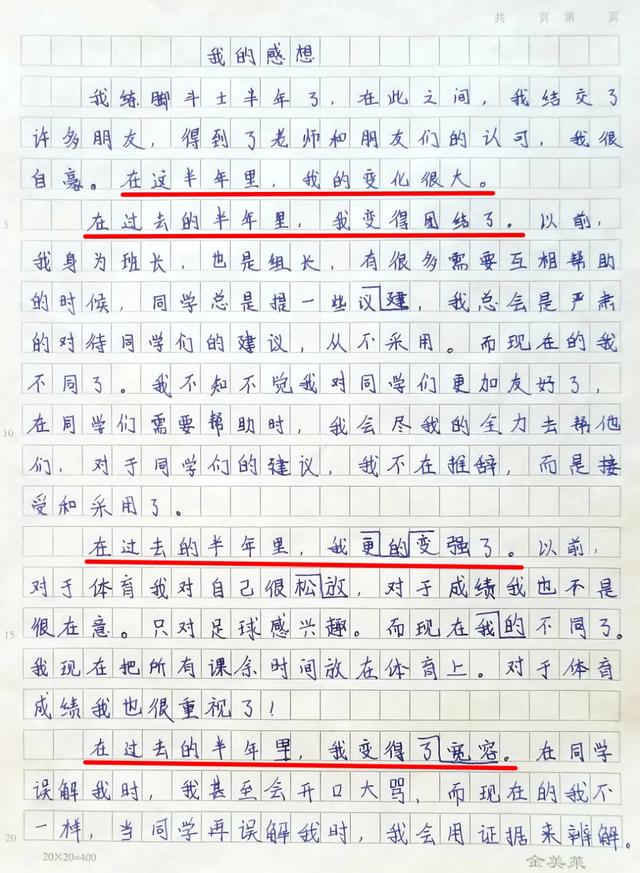 共 页 第 页
我的感想
我练脚斗士半年了，在此之间，我结交了
许多朋友，得到了老师和朋友们的认可，我很
自豪。在这半年里，我的变化很大。
5 在过去的半年里，我变得团结了。以前，
我身为班长，也是组长，有很多需要互相帮助
的时候，同学总是提一些议建，我总会是严肃
的对待同学们的建议，从不采用。而现在的我
不同了。我不知不觉我对同学们更加友好了，
10 在同学们需要帮助时，我会尽我的全力去帮他
们，对于同学们的建议，我不在推辞，而是接
受和采用了。
在过去的半年里，我更的变强了。以前，
对于体育我对自己很松放，对于成绩我也不是
15 很在意。只对足球感兴趣。而现在我的不同了。
我现在把所有课余时间放在体育上。对于体育
成绩我也很重视了！
在过去的半年里，我变得了宽容。在同学
误解我时，我甚至会开口大骂，而现在的我不
20 一样，当同学再误解我时，我会用证据来辨解。
20×20=400 金美莱